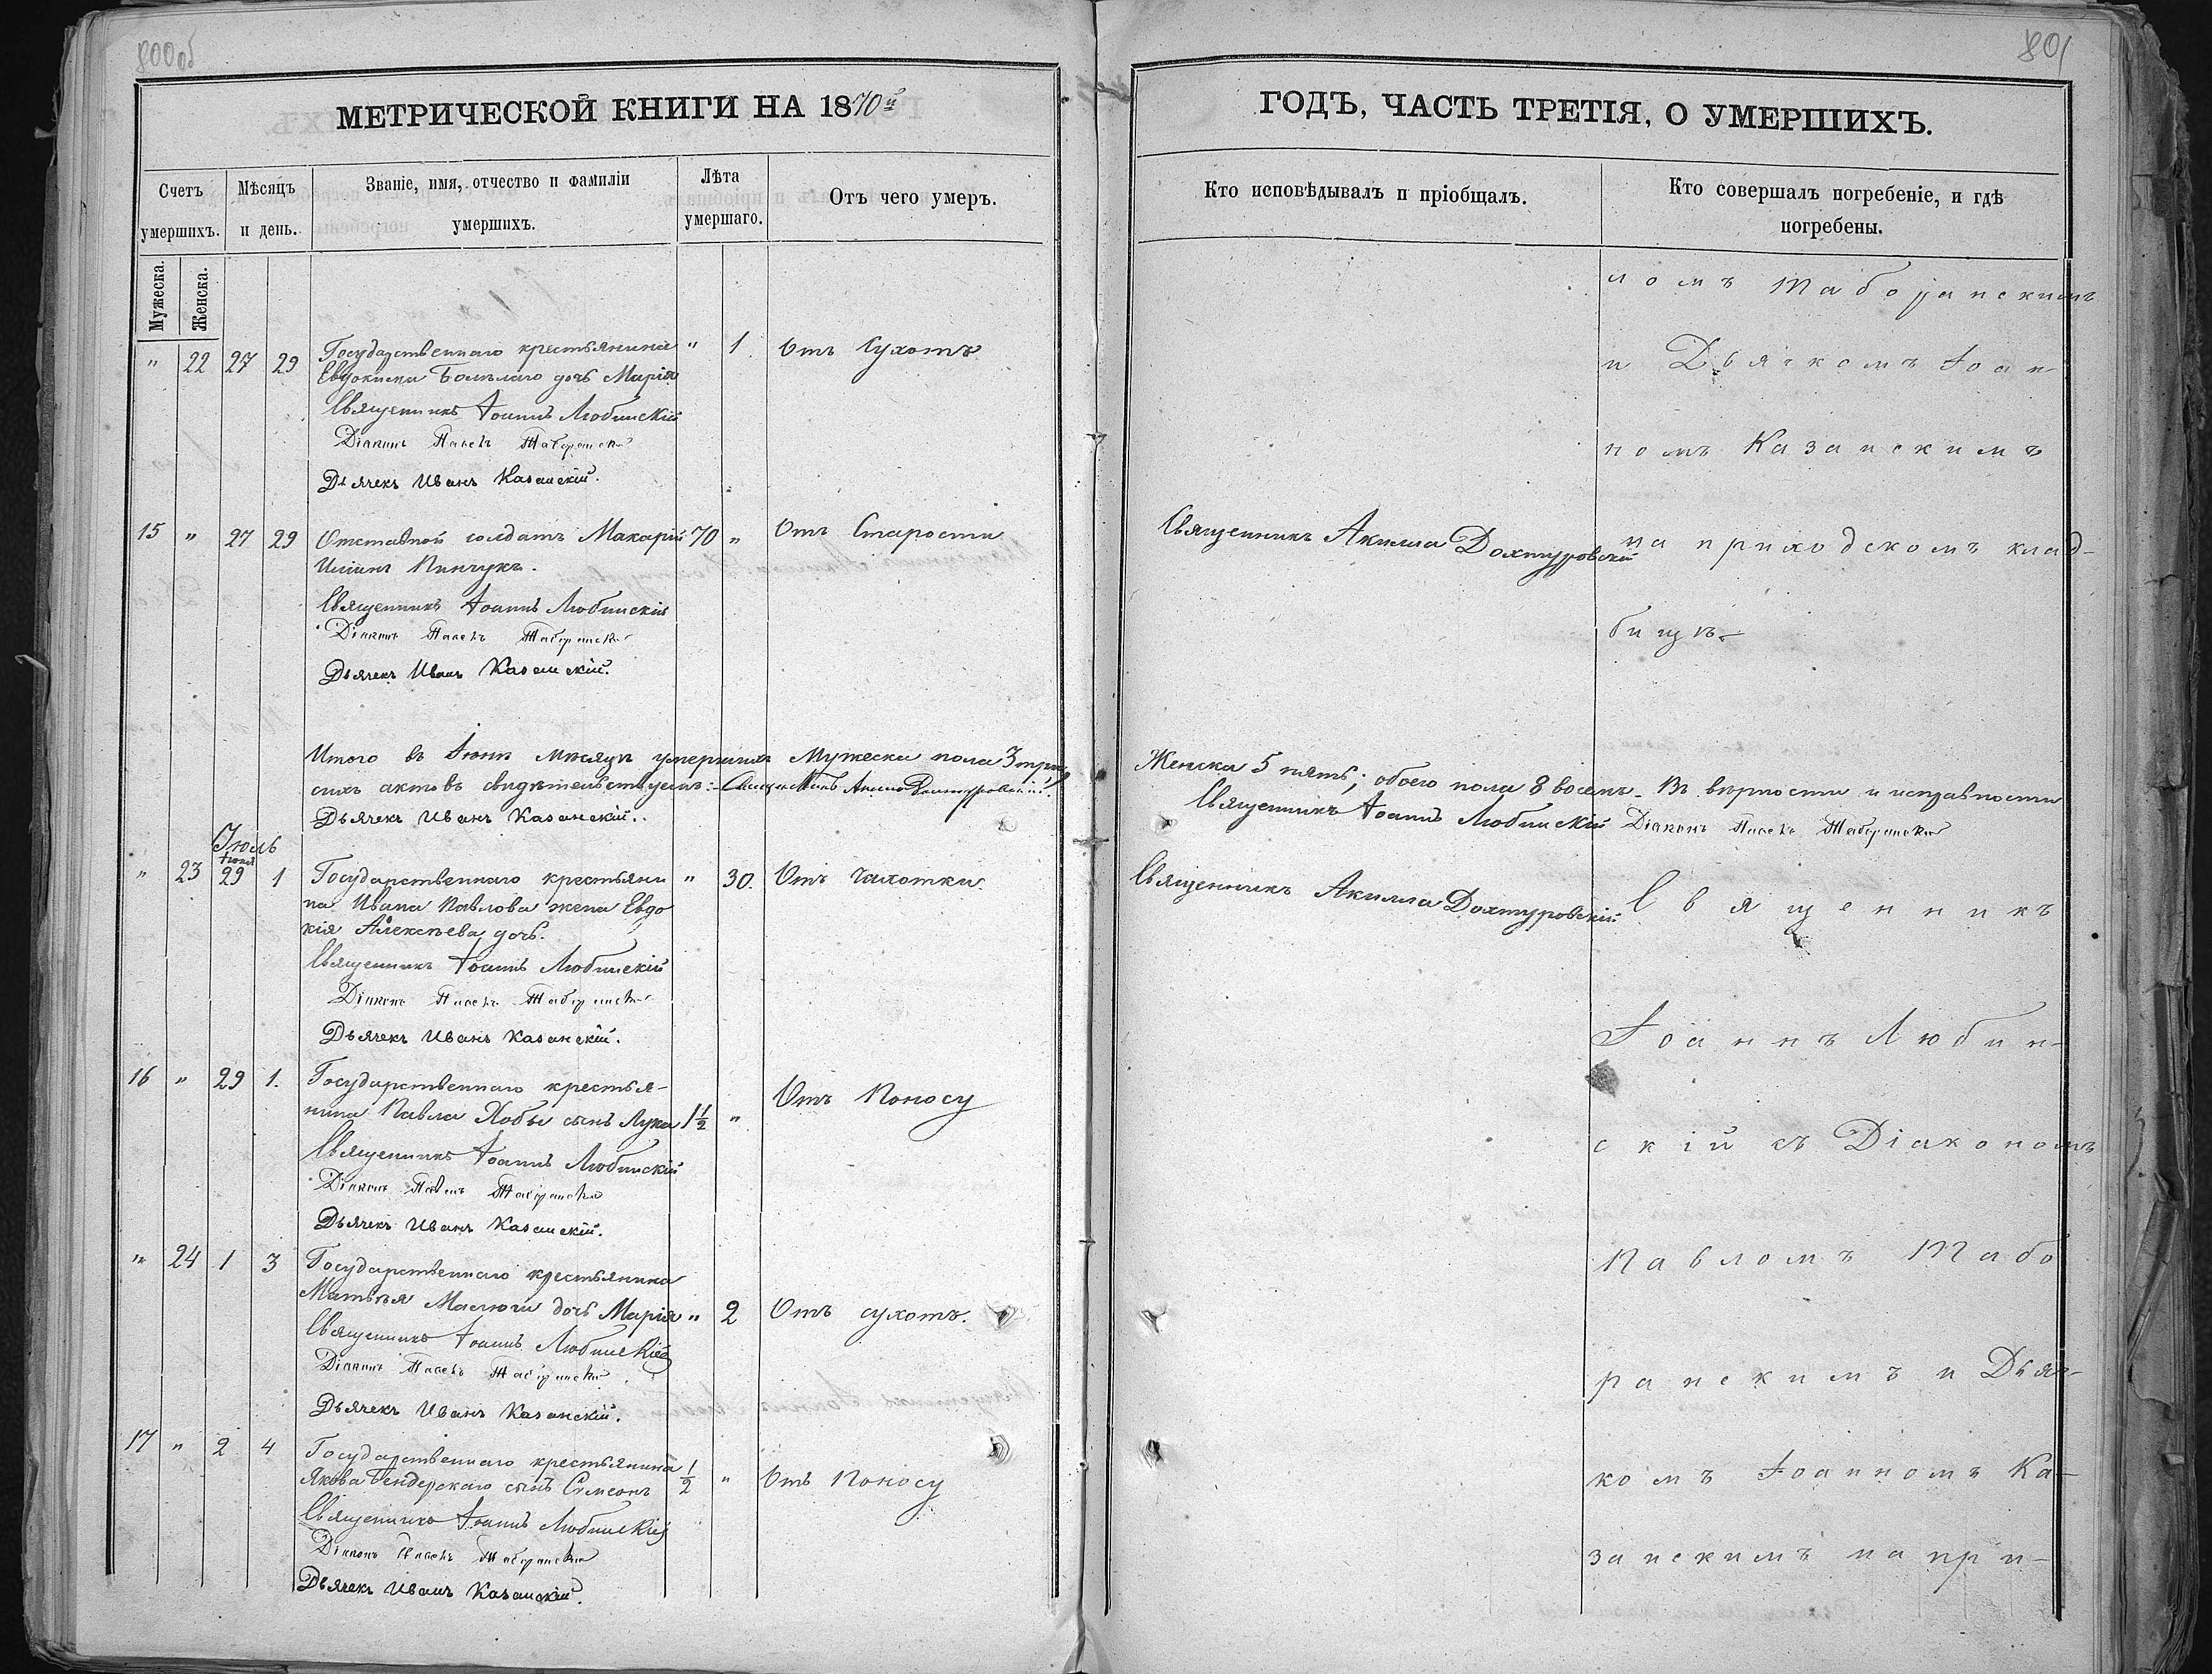 800об
МЕТРИЧЕСКОЙ КНИГИ НА 1870й
Счетъ умершихъ.
Мѣсяцъ и день.
Званіе, имя, отчество и фамиліи умершихъ.
Лѣта умершаго.
Отъ чего умеръ.
Мужеска.
Женска.
" 22 27 29 Государственнаго крестьянина " 1 Отъ Сухотъ
дочь Марія
Священникъ Іоаннъ Любинскій
Діаконъ Павелъ Таборанскій
Дьячекъ Иванъ Казанскій.
15 " 27 29 Отставной солдатъ Макарій 70 " Отъ Старости
Пинчукъ.
Священникъ Іоаннъ Любинскій
Діаконъ Павелъ Таборанскій
Дьячекъ Иванъ Казанскій.
Итого въ Іюнѣ мѣсяцѣ умершихъ Мужеска пола 3 три
сихъ актовъ свидѣтельствуемъ: Священникъ Акилла Дохтуровскій.
Дьячекъ Иванъ Казанскій.
Іюль
Іюня
" 23 29 1 Государственнаго крестьяни " 30. Отъ Чахотки.
на Ивана Павлова жена Евдо
кія Алексѣева дочь.
Священникъ Іоаннъ Любинскій
Діаконъ Павелъ Таборанскій
Дьячекъ Иванъ Казанскій.
16 " 29 1. Государственнаго крестья-
нина Павла Хобы сынъ Лука 1½ " Отъ Поносу
Священникъ Іоаннъ Любинскій
Діаконъ Павелъ Таборанскій
Дьячекъ Иванъ Казанскій.
" 24 1 3 Государственнаго крестьянина
Матѣея Маслюги дочь Марія " 2 Отъ сухотъ.
Священникъ Іоаннъ Любинскій
Діаконъ Павелъ Таборанскій
Дьячекъ Иванъ Казанскій.
17 " 2 4 Государственнаго крестьянина
Якова Бендерскаго сынъ Симеонъ ½ " Отъ Поносу
Священникъ Іоаннъ Любинскій
Діаконъ Павелъ Таборанскій
Дьячекъ Иванъ Казанскій.
801
ГОДЪ, ЧАСТЬ ТРЕТІЯ, О УМЕРШИХЪ.
Кто исповѣдывалъ и пріобщалъ.
Кто совершалъ погребеніе, и гдѣ
погребены.
ломъ Таборанскимъ
и Дьячкомъ Іоан
номъ Казанскимъ
Священникъ Акилла Дохтуровскій
на приходскомъ клад-
бищѣ-
Женска 5 пять; обоего пола 8 восемь. Въ вѣрности и исправности
Священникъ Іоаннъ Любинскій Діаконъ Павелъ Таборанскій
Священникъ Акилла Дохтуровскій
Священникъ
Іоаннъ Любин-
скій съ Діакономъ
Павломъ Табо
ранскимъ и Дьяч-
комъ Іоанномъ Ка-
занскимъ на при-